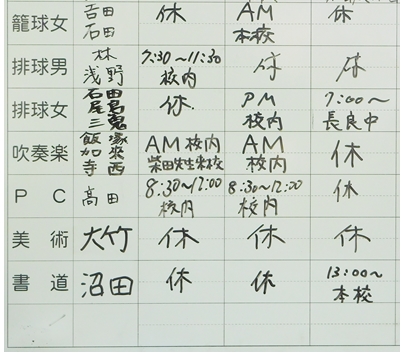 籠球女 吉田 休 AM 休
石田 本校
排球男 林 7:30〜11:30 休 休
浅野 校内
排球女 石田 休 PM 7:00〜
尾島 校内 長良中
三鬼
吹奏楽 飯塚 AM校内 AM 休
加来 柴田先生来校 校内
寺西
PC 高田 8:30〜12:00 8:30〜12:00 休
校内 校内
美術 大竹 休 休 休
書道 沼田 休 休 13:00〜
本校